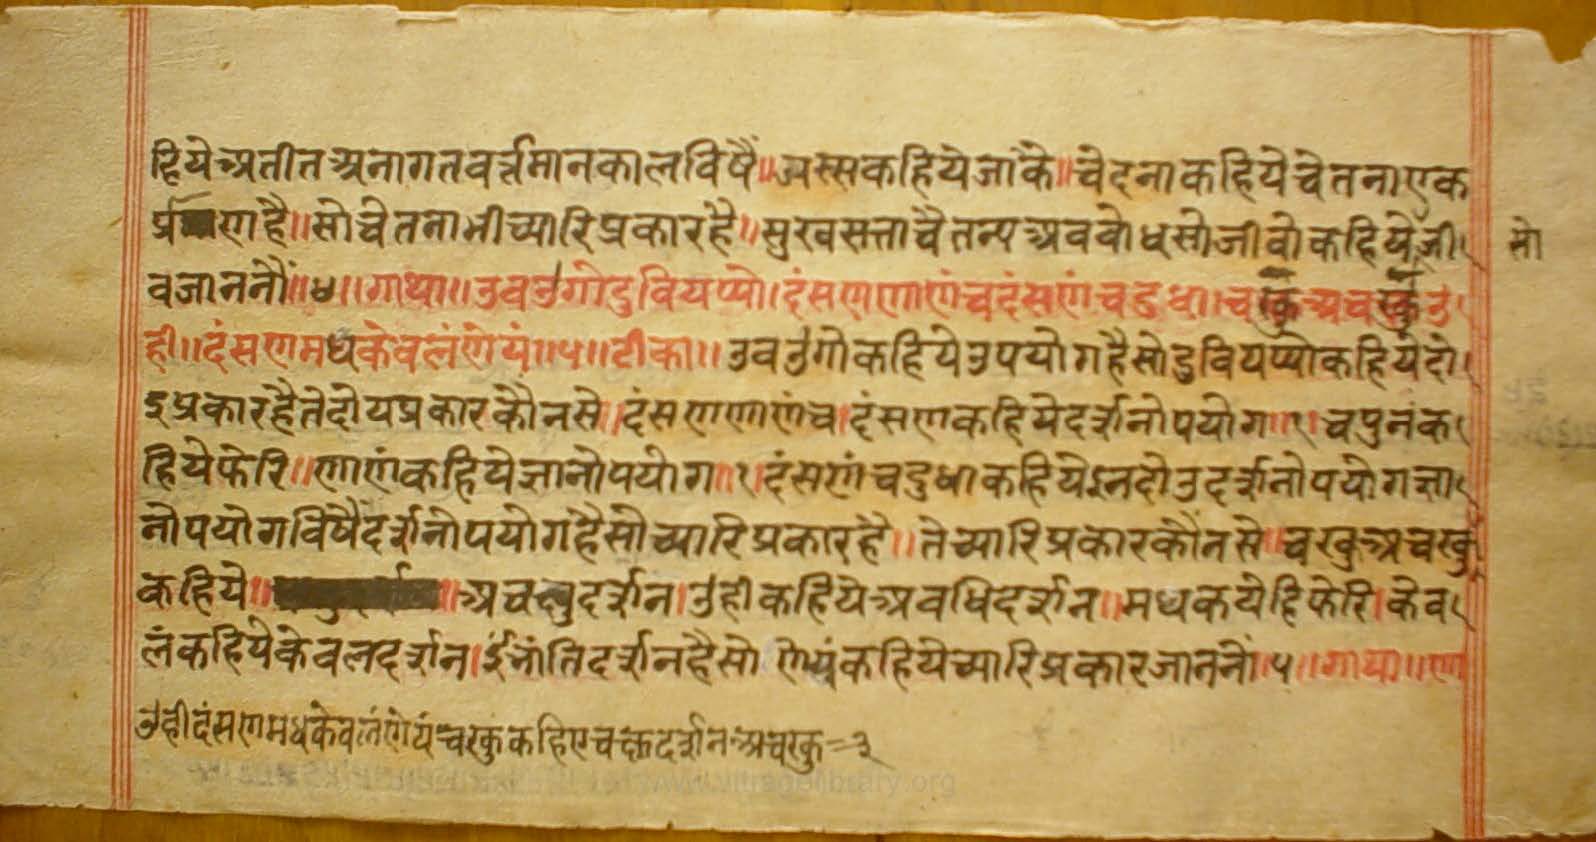 हियेअतीतअनागतवर्त्तमानकालविषैं॥अस्सकहियेजांके॥चेदनाकहियेचेतनाएक
प्र णहै॥सोचेतनाभीच्यारिप्रकारहै॥सुखसत्ताचैतन्यअववोधसोजीवोकहियेजी सो
वजाननौं॥४॥गाथा॥उवउंगोदुवियप्पो।दंसणणाणंचदंसणंचदुधा।चरकुअचरकुउं
ही॥दंसणमधकेवलंणेयं॥५॥टीका॥उवउंगोकहियेउपयोगहैसोदुवियप्पोकहियेदो
इप्रकारहैतेदोयप्रकारकौनसे।दंसणणाणंच।दंसणकहियेदर्शनोपयोग॥१।चपुनंक
हियेफेरि॥णाणंकहियेज्ञानोपयोग॥२।दंसणंचदुधाकहियेइनदोउदर्शनोपयोगज्ञा
नोपयोगविषैदर्शनोपयोगहैसोच्यारिप्रकारहै॥तेच्यारिप्रकारकौंनसे॥चरकुअचरकु
कहिये॥ ॥अचक्षुदर्शन।उंहीकहियेअवधिदर्शन॥मधकयेहिफेरि।केव
लंकहियेकेवलदर्शन।ईंनांतिदर्शनहैसो णेयंकहियेच्यारिप्रकारजाननों।५॥गाथा॥ण
उंहीदंसणमधकेवलंणेयंचरकुकहिएचक्षुदर्शनअचरकु=३
www.vitragelibrary.org